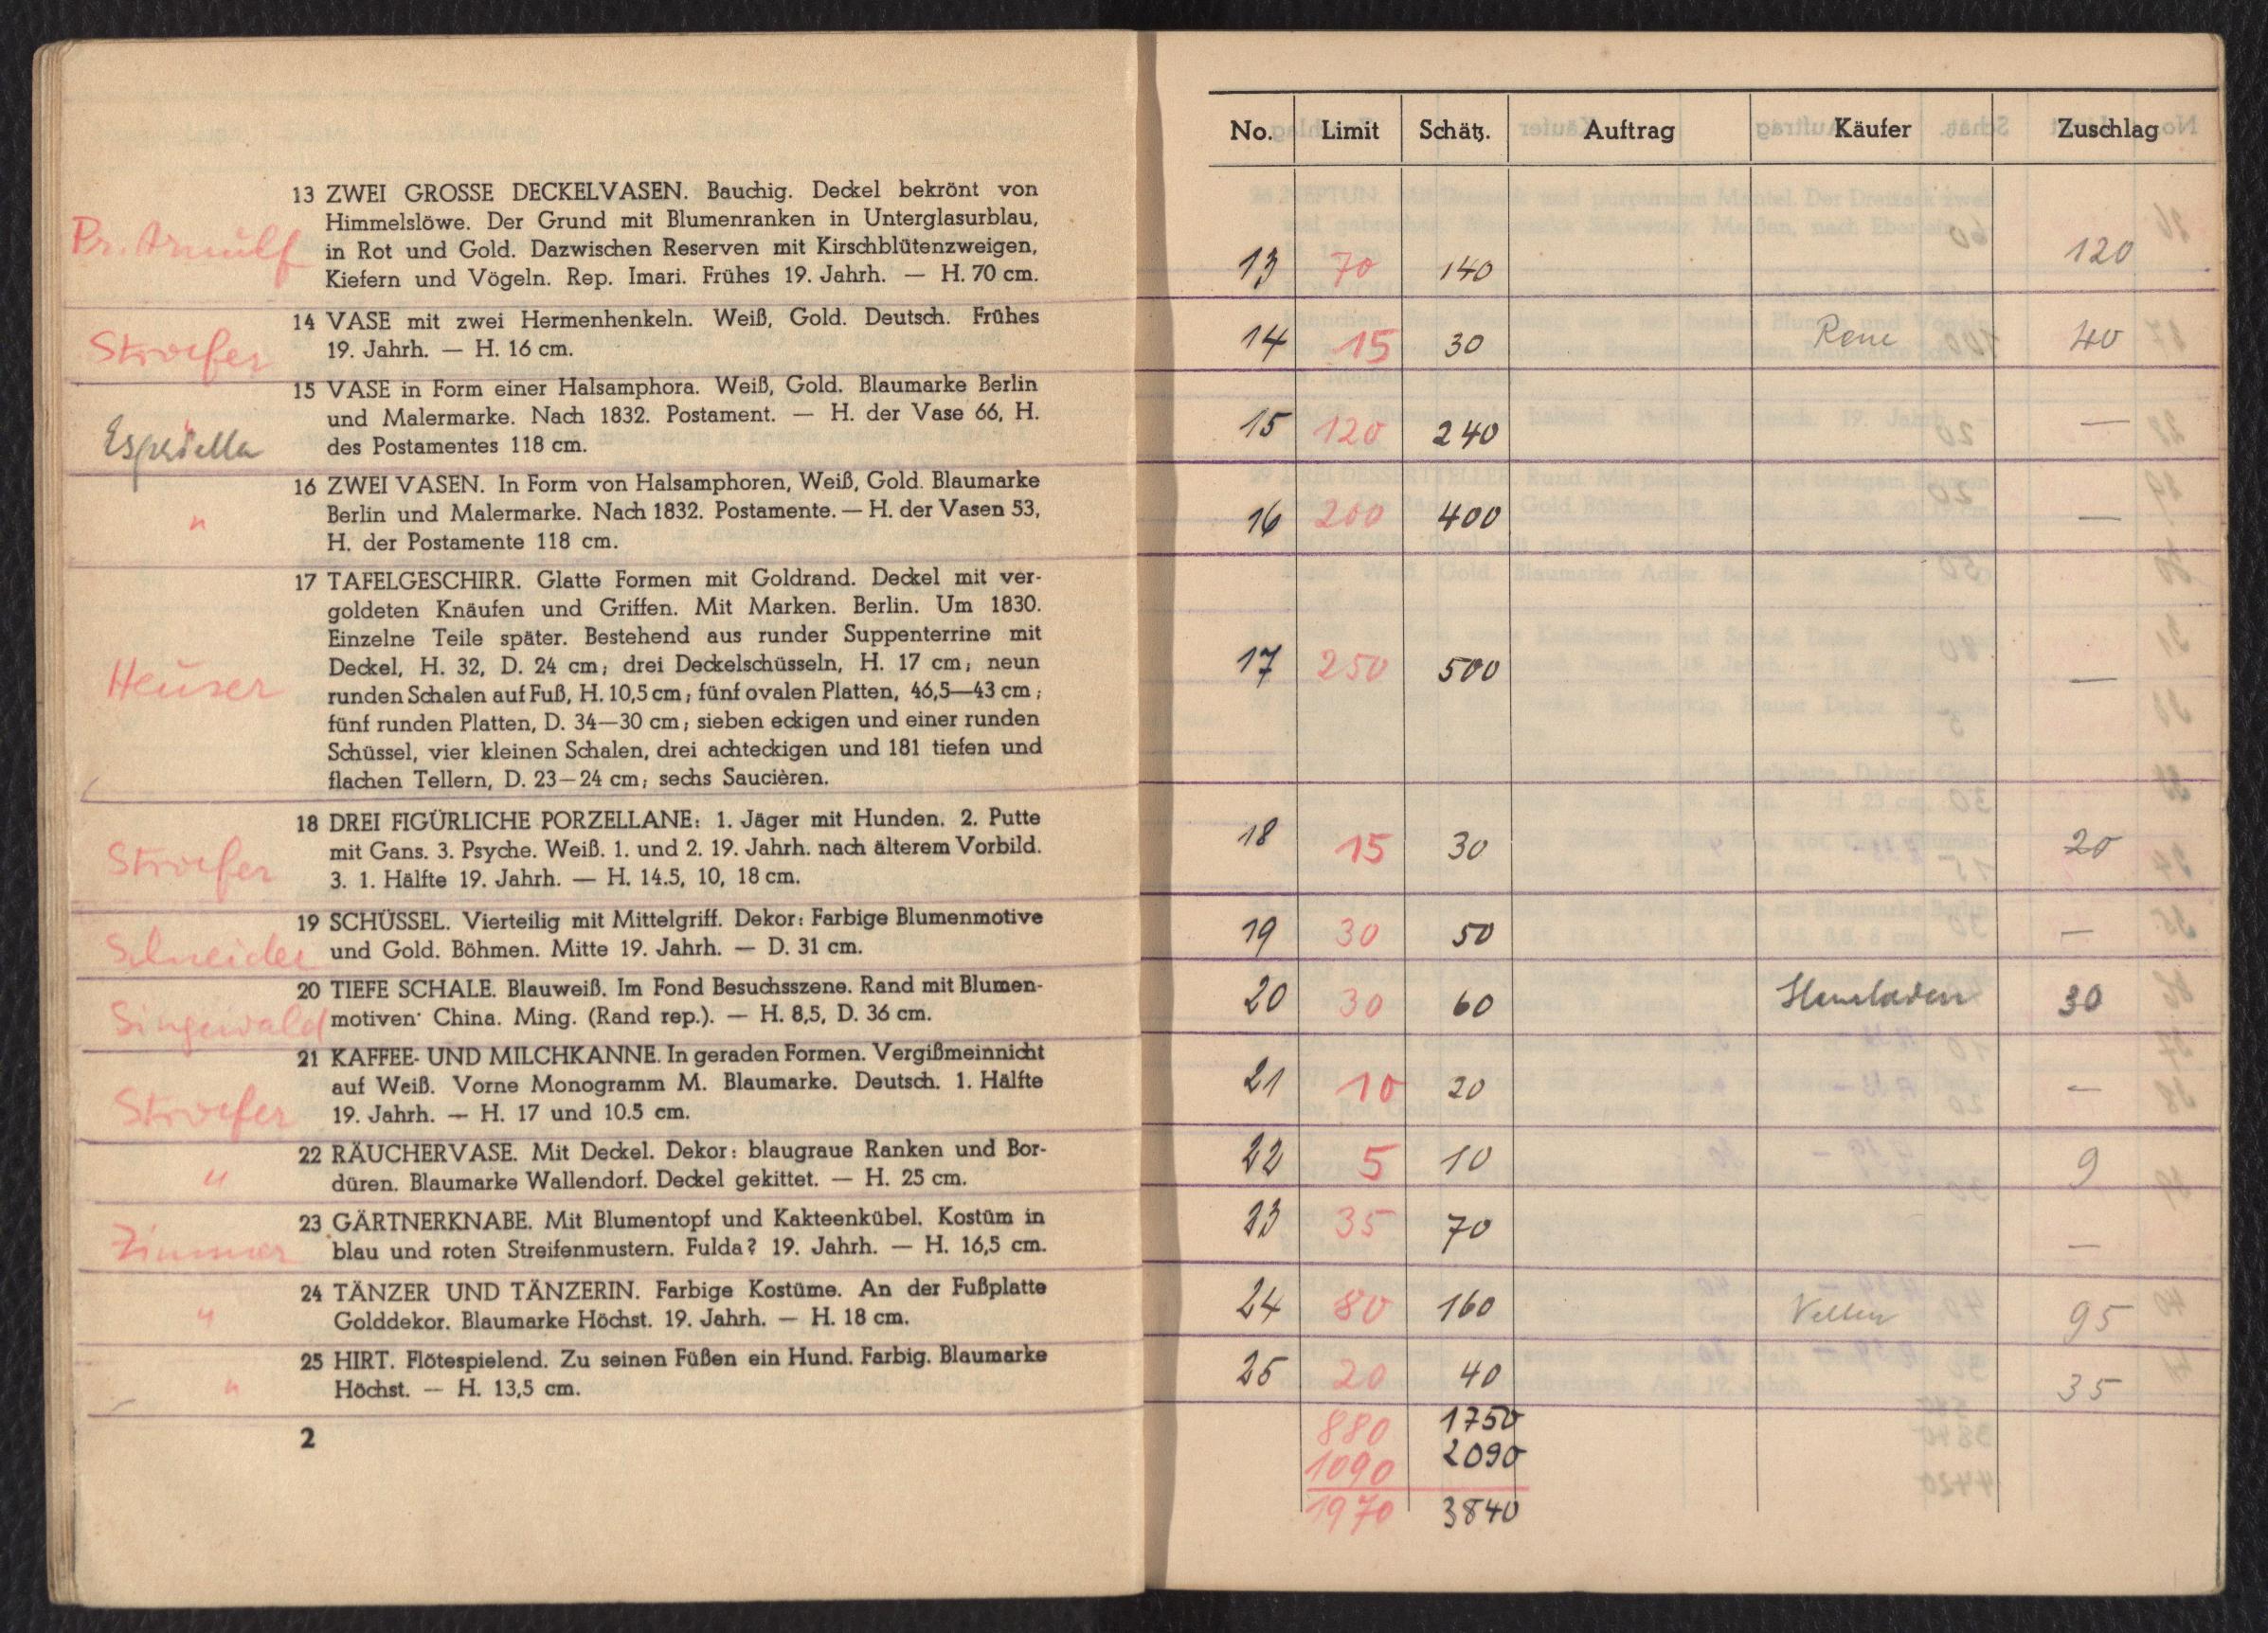 13 ZWEI GROSSE DECKELVASEN. Bauchig. Deckel bekrönt von
Himmelslöwe. Der Grund mit Blumenranken in Unterglasurblau,
Pr. Arnulf in Rot und Gold. Dazwischen Reserven mit Kirschblütenzweigen,
Kiefern und Vögeln. Rep. Imari. Frühes 19. Jahrh. — H. 70 cm.
14 VASE mit zwei Hermenhenkeln. Weiß, Gold. Deutsch. Frühes
Stroefer 19. Jahrh. — H. 16 cm.
15 VASE in Form einer Halsamphora. Weiß, Gold. Blaumarke Berlin
und Malermarke. Nach 1832. Postament. — H. der Vase 66, H.
des Postamentes 118 cm.
16 ZWEI VASEN. In Form von Halsamphoren, Weiß, Gold. Blaumarke
" Berlin und Malermarke. Nach 1832. Postamente. — H. der Vasen 53,
H. der Postamente 118 cm.
17 TAFELGESCHIRR. Glatte Formen mit Goldrand. Deckel mit ver-
goldeten Knäufen und Griffen. Mit Marken. Berlin. Um 1830.
Einzelne Teile später. Bestehend aus runder Suppenterrine mit
Deckel, H. 32, D. 24 cm; drei Deckelschüsseln, H. 17 cm; neun
Heuser runden Schalen auf Fuß, H. 10,5 cm; fünf ovalen Platten, 46,5—43 cm;
fünf runden Platten, D. 34—30 cm; sieben eckigen und einer runden
Schüssel, vier kleinen Schalen, drei achteckigen und 181 tiefen und
flachen Tellern, D. 23—24 cm; sechs Saucièren.
18 DREI FIGÜRLICHE PORZELLANE: 1. Jäger mit Hunden. 2. Putte
Stroefer mit Gans. 3. Psyche. Weiß. 1. und 2. 19. Jahrh. nach älterem Vorbild.
3. 1. Hälfte 19. Jahrh. — H. 14.5, 10, 18 cm.
19 SCHÜSSEL. Vierteilig mit Mittelgriff. Dekor: Farbige Blumenmotive
Schneider und Gold. Böhmen. Mitte 19. Jahrh. — D. 31 cm.
20 TIEFE SCHALE. Blauweiß. Im Fond Besuchsszene. Rand mit Blumen-
Singewald motiven. China. Ming. (Rand rep.). — H. 8,5, D. 36 cm.
21 KAFFEE- UND MILCHKANNE. In geraden Formen. Vergißmeinnicht
auf Weiß. Vorne Monogramm M. Blaumarke. Deutsch. 1. Hälfte
Stroefer 19. Jahrh. — H. 17 und 10.5 cm.
22 RÄUCHERVASE. Mit Deckel. Dekor: blaugraue Ranken und Bor-
" düren. Blaumarke Wallendorf. Deckel gekittet. — H. 25 cm.
23 GÄRTNERKNABE. Mit Blumentopf und Kakteenkübel. Kostüm in
Zimmer blau und roten Streifenmustern. Fulda? 19. Jahrh. — H. 16,5 cm.
24 TÄNZER UND TÄNZERIN. Farbige Kostüme. An der Fußplatte
" Golddekor. Blaumarke Höchst. 19. Jahrh. — H. 18 cm.
25 HIRT. Flötespielend. Zu seinen Füßen ein Hund. Farbig. Blaumarke
" Höchst. — H. 13,5 cm.
2
No. Limit Schätz. Auftrag Käufer Zuschlag
13 70 140 120
14 15 30 Rene 40
15 120 240 —
16 200 400 —
17 250 500 —
18 15 30 20
19 30 50 —
20 30 60 30
21 10 20 —
22 5 10 9
23 35 70 —
24 80 160 95
25 20 40 35
880 1750
1090 2090
1970 3840